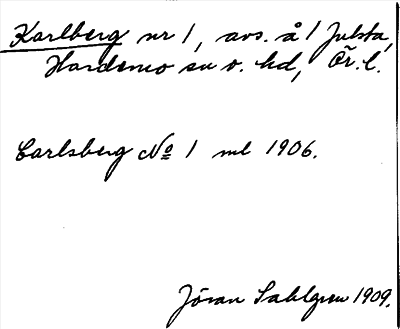 Karlberg nr 1, avs. å 1 Julsta,
Hardemo sn o. hd, Ör. l.
Carlsberg № 1 ml 1906.
Jöran Sahlgren 1909.